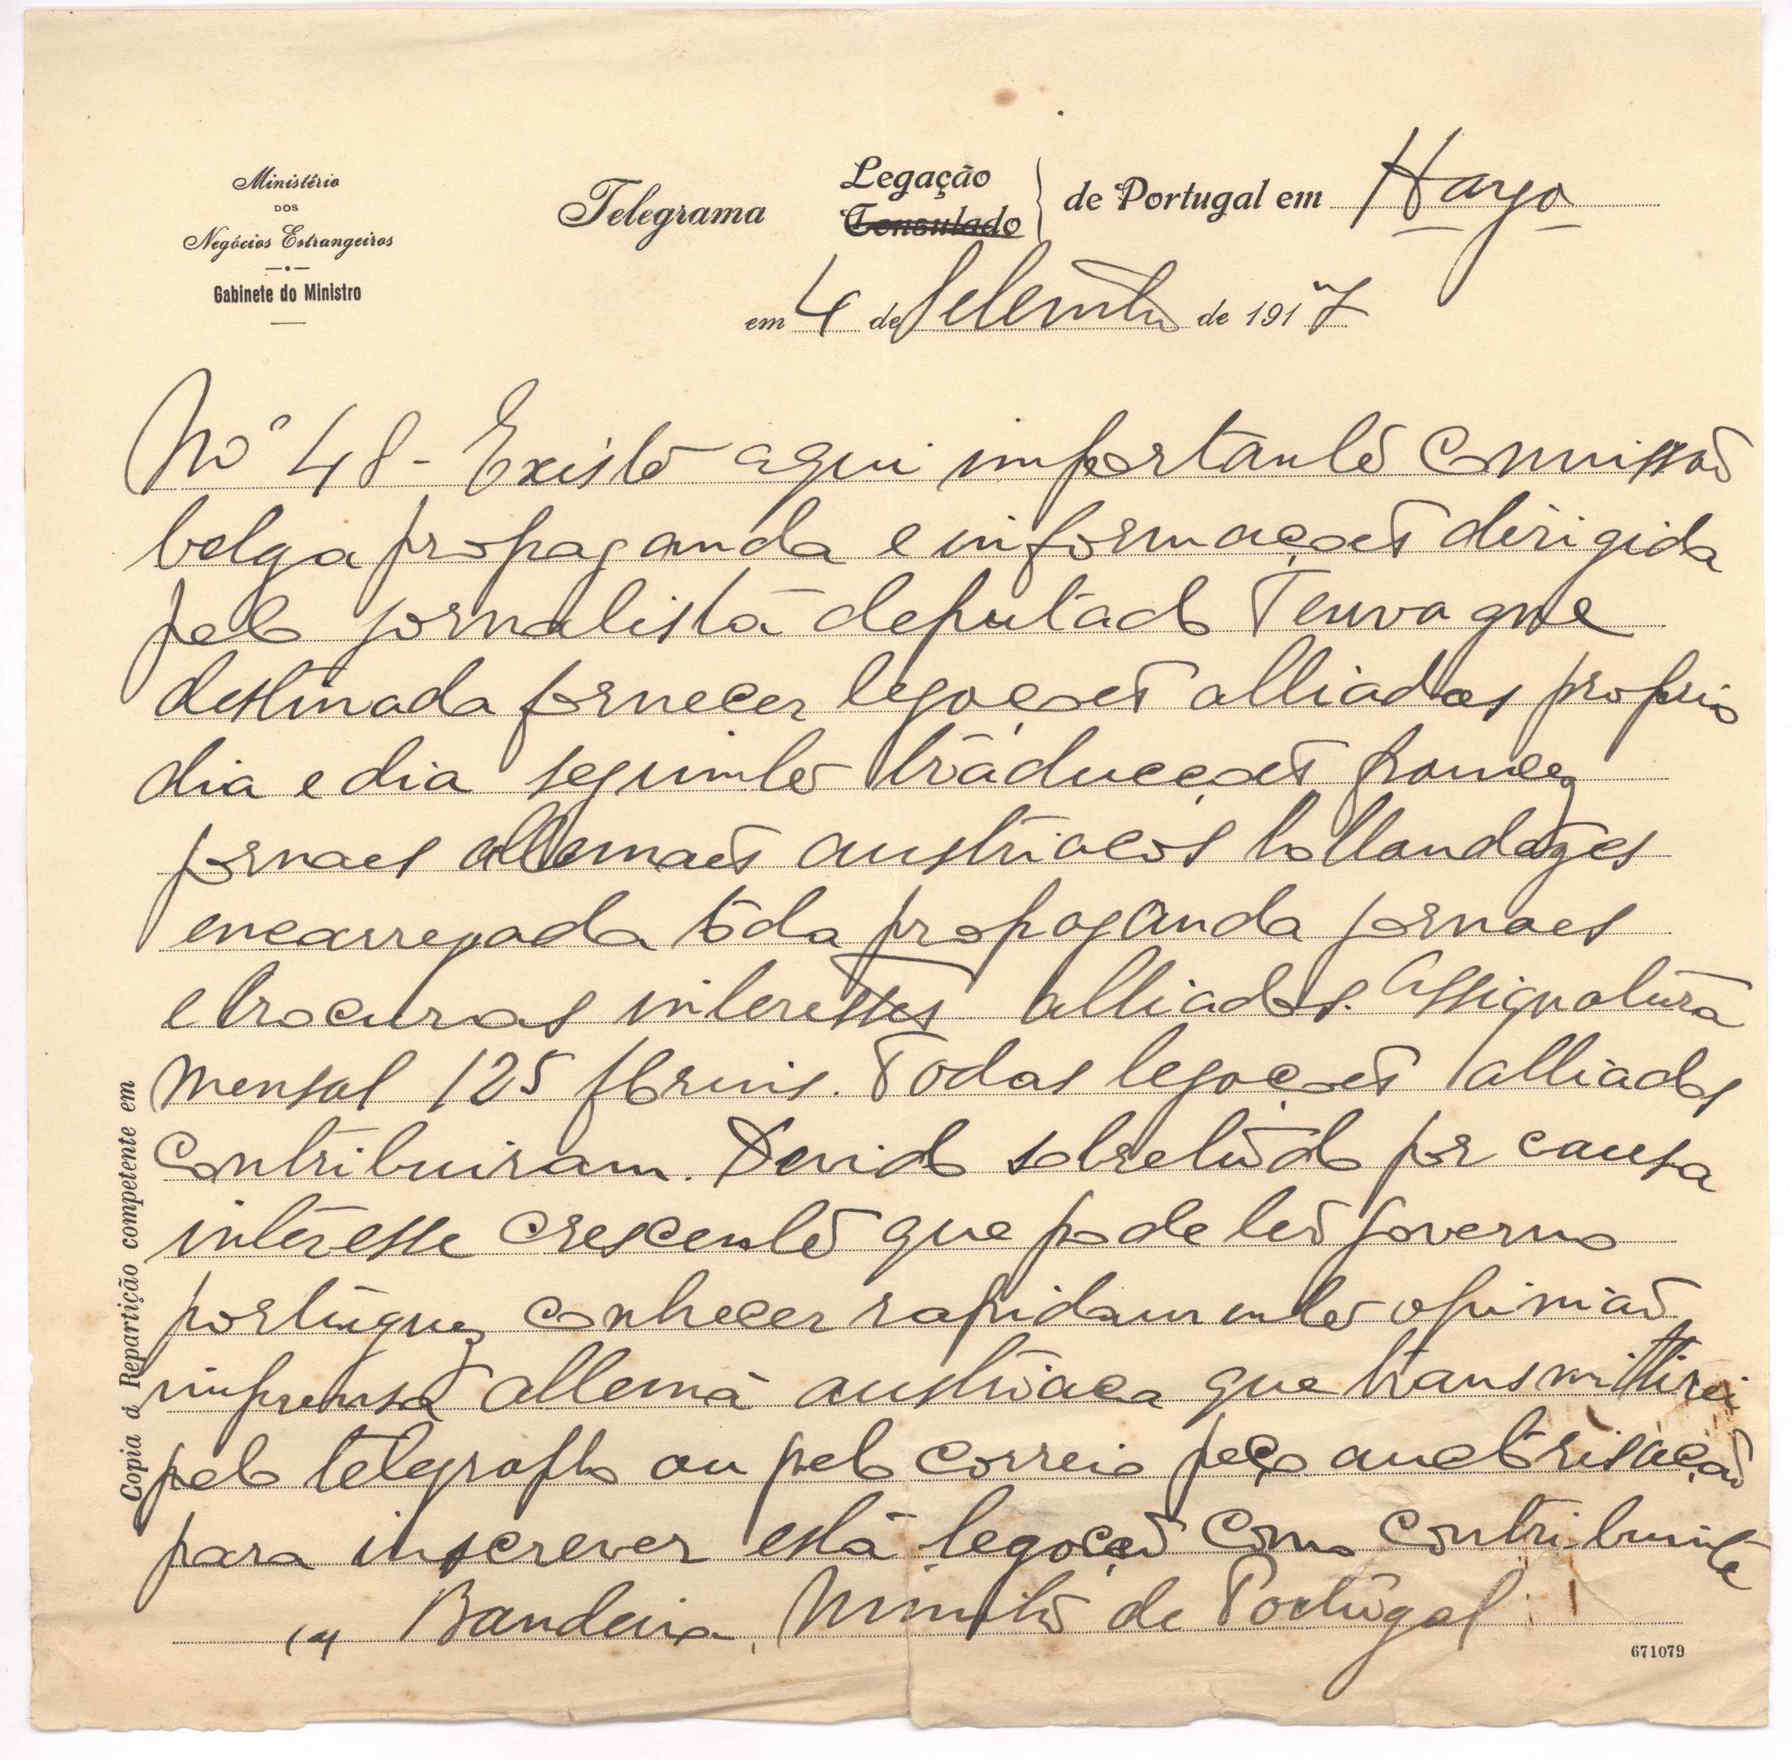 Ministério
DOS
Negócios Estrangeiros
Gabinete do Ministro
Telegrama
Legação
Consulado
de Portugal em Haya
em 4 de Setembro de 1917
Nº 48 - Existe aqui importante commissão
belga propaganda e informações dirigida
pelo jornalista deputado Terwagne
destinada fornecer legações alliadas proprio
dia e dia seguinte traducções francez
jornaes allemães austriacos hollandezes
encarregada toda propaganda jornaes
e brocuras interesses alliados. Assignatura
mensal 125 florins. Todas legações alliadas
contribuiram. Devido sobretudo por causa
interesse crescente que pode ter governo
portuguez conhecer rapidamente opinião
imprensa allemã austriaca que transmittirei
pelo telegrapho ou pelo correio peço auctorisação
para inscrever esta legação como contribuinte
(a) Bandeira, Ministro de Portugal
Copia á Repartição competente em
671079